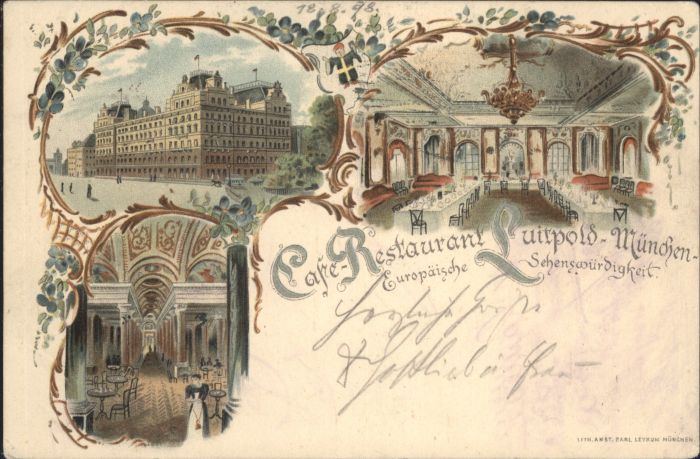 18.8.98.
Café-Restaurant Luitpold-München-
Europäische Sehenswürdigkeit.
Herzliche Grüße
Gottlieb u. Frau
LITH. ANST. CARL LEYKUM MÜNCHEN